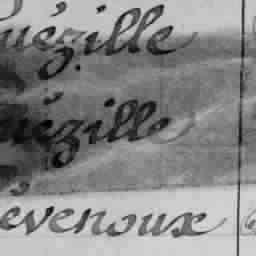 uézille
uézille
évenoux